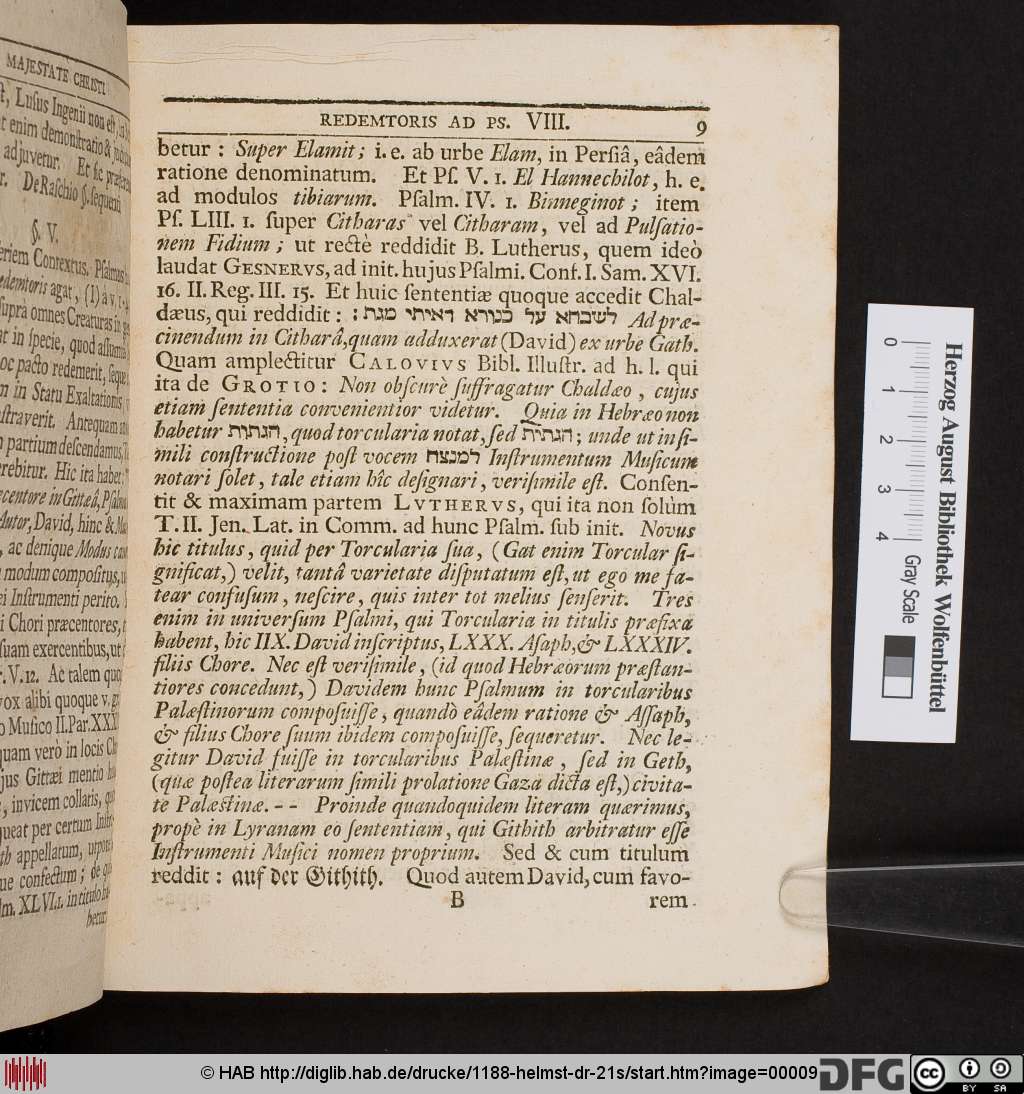 MAJESTATE CHRISTI
Lusus Ingenii non est
enim demonstratio &
adjuvetur. Et sic
De Raschio §. sequenti
§. V.
Contextus, Psalmus
agat, (I) à v. 1.
suprà omnes Creaturas in
in specie, quod
pacto redemerit,
in Statu Exaltationis
Antequam
partium descendamus,
Hic ita habet:
in Gittæâ,
Autor, David, hinc &
ac denique Modus
modum compositus,
Instrumenti perito.
Chori præcentores,
suam exercentibus, ut
V. 12. Ac talem
vox alibi quoque v. g.
Musico II. Par.
quam verò in locis
Gittæi mentio
invicem collaris,
queat per certum
appellatum,
confectum; de
XLVI. 1. in titulo
betur:
REDEMTORIS AD PS. VIII. 9
betur : Super Elamit; i. e. ab urbe Elam, in Persiâ, eâdem
ratione denominatum. Et Pſ. V. 1. El Hannechilot, h. e.
ad modulos tibiarum. Pſalm. IV. 1. Binneginot; item
Pſ. LIII. 1. ſuper Citharas vel Citharam, vel ad Pulſatio-
nem Fidium; ut rectè reddidit B. Lutherus, quem ideò
laudat GESNERVS, ad init. hujus Pſalmi. Conf. I. Sam. XVI.
16. II. Reg. III. 15. Et huic ſententiæ quoque accedit Chal-
dæus, qui reddidit : לשבחא על כנורא דאיתי מגת : Ad præ-
cinendum in Citharâ, quam adduxerat (David) ex urbe Gath.
Quam amplectitur CALOVIVS Bibl. Illuſtr. ad h. l. qui
ita de GROTIO: Non obſcurè ſuffragatur Chaldæo, cujus
etiam ſententia convenientior videtur. Quia in Hebræo non
habetur הגתות, quod torcularia notat, ſed הגתית; unde ut in ſi-
mili conſtructione poſt vocem למנצח Inſtrumentum Muſicum
notari ſolet, tale etiam hîc deſignari, veriſimile eſt. Conſen-
tit & maximam partem LVTHERVS, qui ita non ſolùm
T. II. Jen. Lat. in Comm. ad hunc Pſalm. ſub init. Novus
hic titulus, quid per Torcularia ſua, (Gat enim Torcular ſi-
gnificat,) velit, tantâ varietate diſputatum eſt, ut ego me fa-
tear confuſum, neſcire, quis inter tot melius ſenſerit. Tres
enim in univerſum Pſalmi, qui Torcularia in titulis præfixa
habent, hic IIX. David inſcriptus, LXXX. Aſaph, & LXXXIV.
filiis Chore. Nec eſt veriſimile, (id quod Hebræorum præſtan-
tiores concedunt,) Davidem hunc Pſalmum in torcularibus
Palæſtinorum compoſuiſſe, quandò eâdem ratione & Aſſaph,
& filius Chore ſuum ibidem compoſuiſſe, ſequeretur. Nec le-
gitur David fuiſſe in torcularibus Palæſtinæ, ſed in Geth,
(quæ poſtea literarum ſimili prolatione Gaza dicta eſt,) civita-
te Palæſtinæ. - - Proinde quandoquidem literam quærimus,
propè in Lyranam eo ſententiam, qui Githith arbitratur eſſe
Inſtrumenti Muſici nomen proprium. Sed & cum titulum
reddit : auf der Githith. Quod autem David, cum favo-
B rem
Herzog August Bibliothek Wolfenbüttel
0 1 2 3 4 Gray Scale
© HAB http://diglib.hab.de/drucke/1188-helmst-dr-21s/start.htm?image=00009 DFG cc BY SA